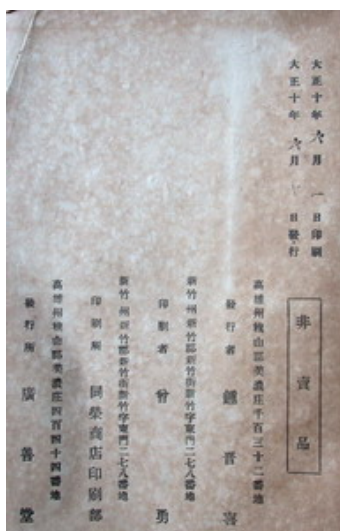 大正十年六月一日印刷
大正十年六月 日發行
非賣品
高雄州旗山郡美濃庄千百三十二番地
發行者 鍾晋喜
新竹州新竹郡新竹街新竹字東門二七八番地
印刷者 曾勇
新竹州新竹郡新竹街新竹字東門二七八番地
印刷所 同榮商店印刷部
高雄州旗山郡美濃庄四百四十四番地
發行所 廣善堂